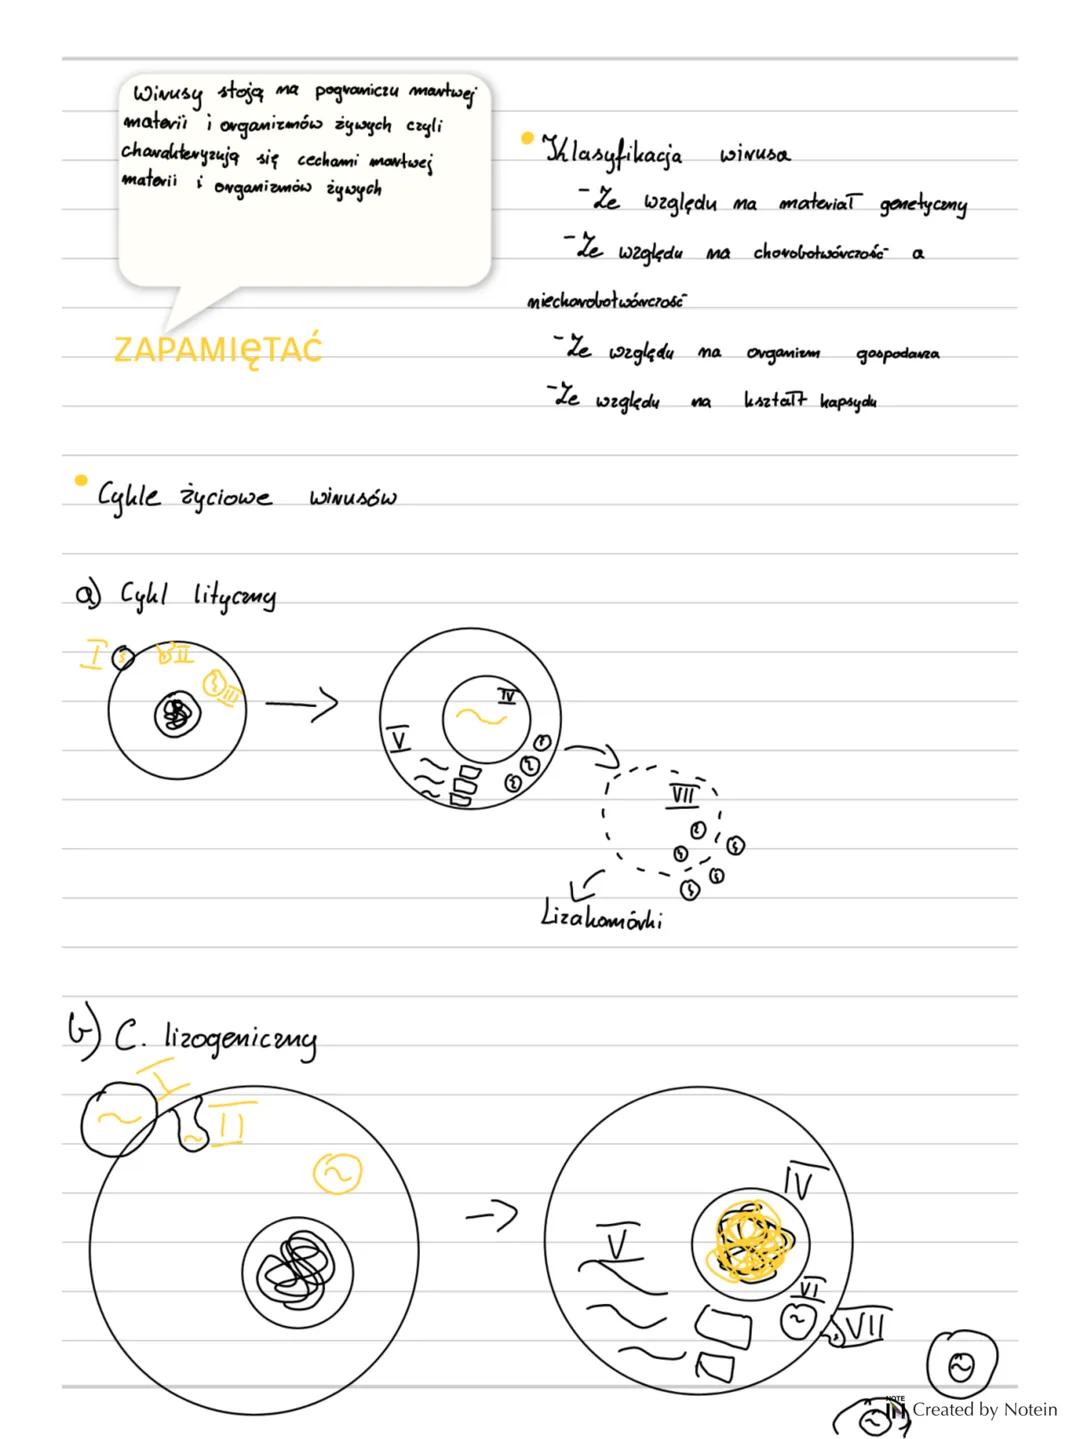 Wirusy stoją na pograniczu martwej
materii i organizmów żywych czyli
charakteryzują się cechami martwej
materii i organizmów żywych
ZAPAMIĘTAĆ
Klasyfikacja wirusa
- Ze względu na materiał genetyczny
- Ze względu na chorobotwórczość a
niechorobotwórczość
- Ze względu na organizm gospodarza
- Ze względu na kształt kapsydu
Cykle życiowe wirusów
a) Cykl lityczny
I II
III
IV
V
VII
Lizakomórki
b) C. lizogeniczny
I
II
IV
V
VI
VII
NOTE
IN Created by Notein